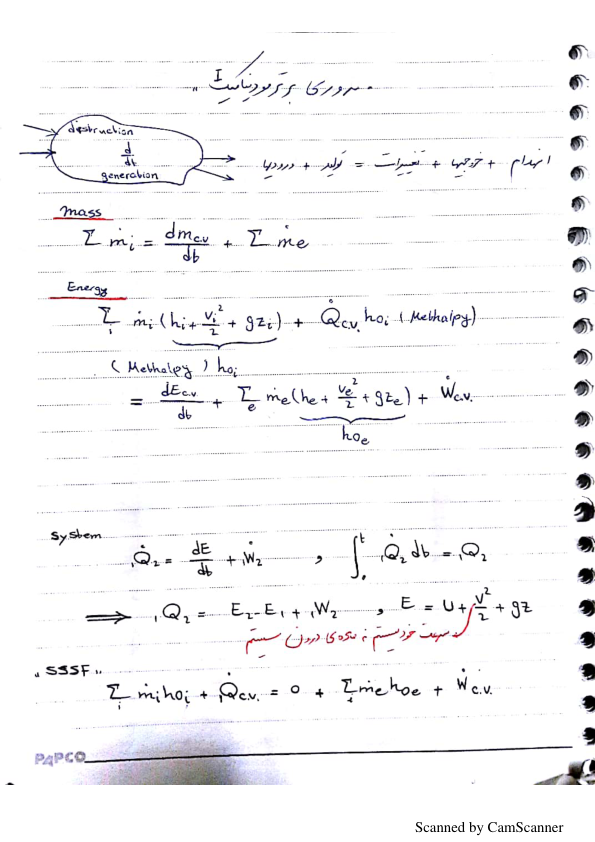 مروری بر ترمودینامیک I
distruction
d/dt
generation
انهدام + خروجیها + تغییرات = تولید + ورودیها
mass
Σ ṁi = dmc.v/dt + Σ ṁe
Energy
Σi ṁi (hi + Vi²/2 + gzi) + Q̇c.v. hoi (Methalpy)
(Methalpy) hoi
= dEc.v/dt + Σe ṁe (he + Ve²/2 + gze) + Ẇc.v.
hoe
System
₁Q̇₂ = dE/dt + ₁Ẇ₂ , ∫₀ᵗ ₁Q̇₂ dt = ₁Q₂
⟹ ₁Q₂ = E₂-E₁ + ₁W₂ , E = U + V²/2 + gz
سرعت خود سیستم نه ماده‌ی درون سیستم
"SSSF"
Σi ṁi hoi + Q̇c.v. = 0 + Σ ṁe hoe + Ẇc.v.
PAPCO
Scanned by CamScanner